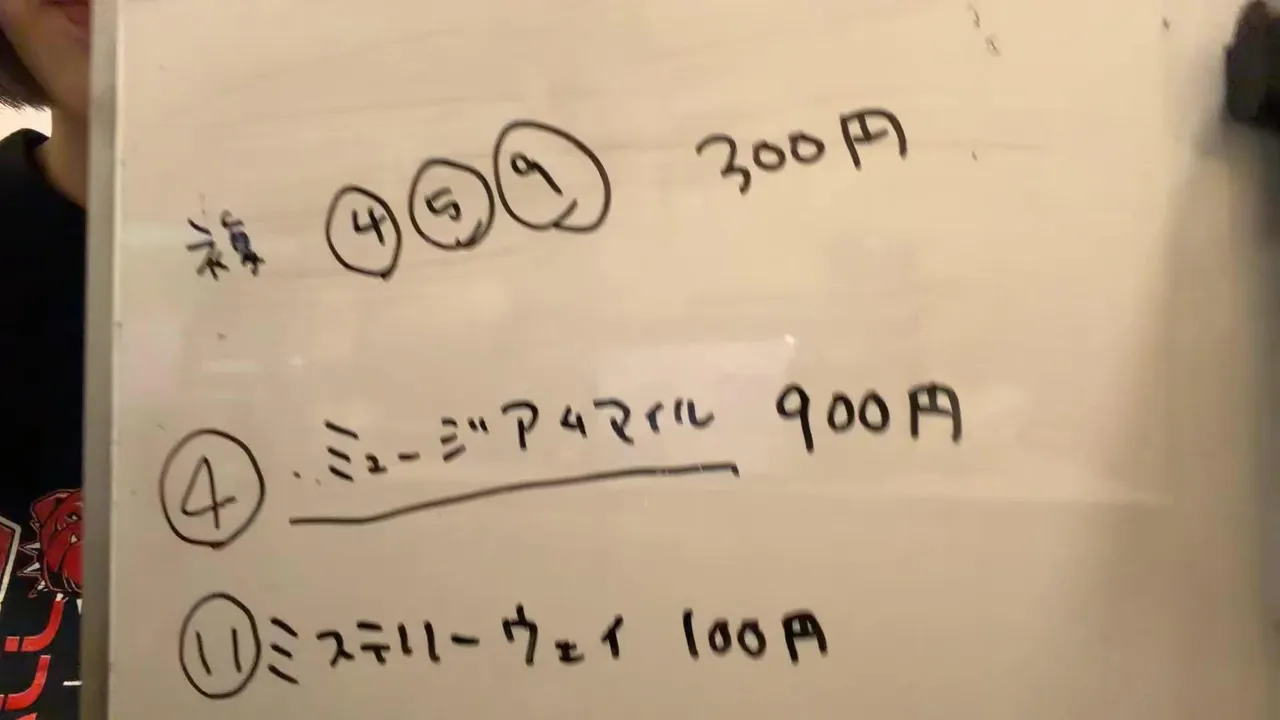 複 ④ ⑤ ⑨ 300円
④ ミュージアムマイル 900円
⑪ ミステリーウェイ 100円